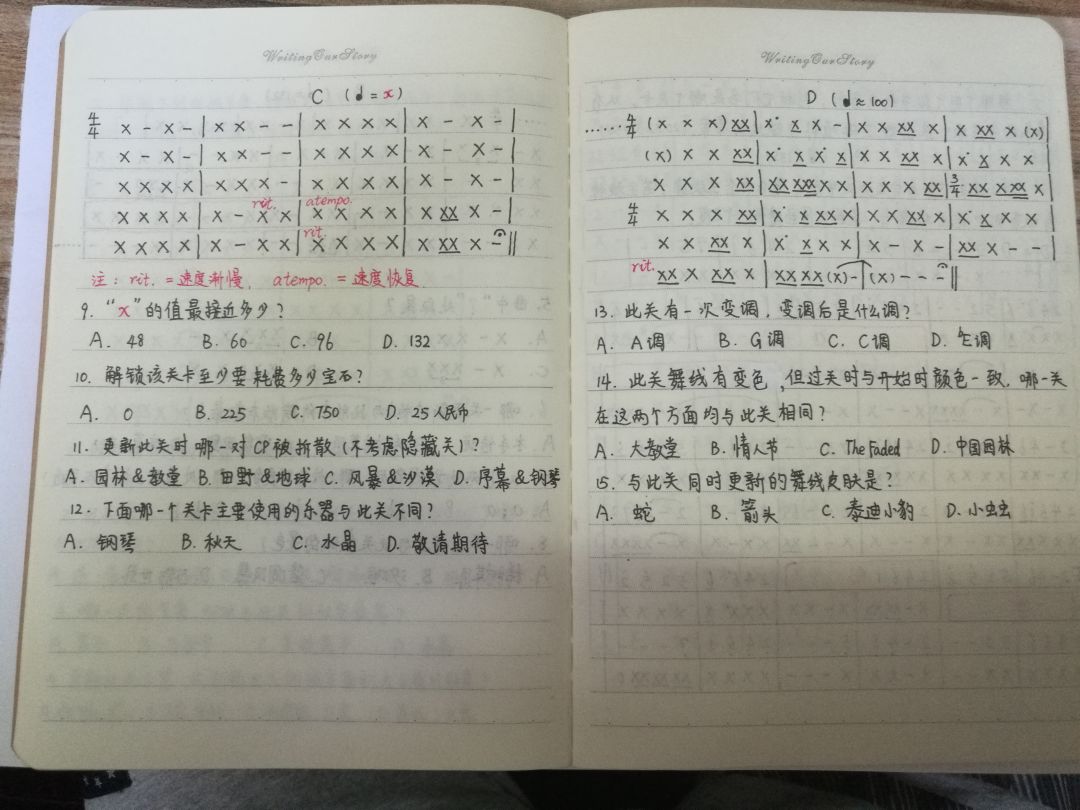 WritingOurStory
C (♩=x)
4/4 x - x - | x x - - | x x x x | x - x - | ......
x - x - | x x - - | x x x x | x - x - |
x x x x | x x x - | x x x x | x - x - |
rit. atempo.
x x x x | x - x x | x x x x | x xx x - |
rit.
x x x x | x - x x | x x x x | x xx x - ||
注: rit. =速度渐慢, atempo. =速度恢复
9. "x"的值最接近多少?
A. 48 B. 60 C. 96 D. 132
10. 解锁该关卡至少要耗费多少宝石?
A. 0 B. 225 C. 750 D. 25人民币
11. 更新此关时哪一对CP被拆散(不考虑隐藏关)?
A. 园林&教堂 B. 田野&地球 C. 风暴&沙漠 D. 序幕&钢琴
12. 下面哪一个关卡主要使用的乐器与此关不同?
A. 钢琴 B. 秋天 C. 水晶 D. 敬请期待
WritingOurStory
D (♩≈100)
...... 4/4 (x x x) xx | x· x x - | x x xx x | x xx x (x)
(x) x x xx | x· x x· x | x x xx x | x· x x x |
x x x xx | xx xx x x | x x x xx | 3/4 xx xx x |
4/4 x x x xx | x· x xx x | x x xx x | x· x x x |
x x xx x | x· x x x | x - x - x | xx x - - |
rit. xx x xx x | xx xx (x) - | (x) - - - ||
13. 此关有一次变调,变调后是什么调?
A. A调 B. G调 C. C调 D. ᵇE调
14. 此关舞线有变色,但过关时与开始时颜色一致,哪一关
在这两个方面均与此关相同?
A. 大教堂 B. 情人节 C. The Faded D. 中国园林
15. 与此关同时更新的舞线皮肤是?
A. 蛇 B. 箭头 C. 泰迪小豹 D. 小虫虫